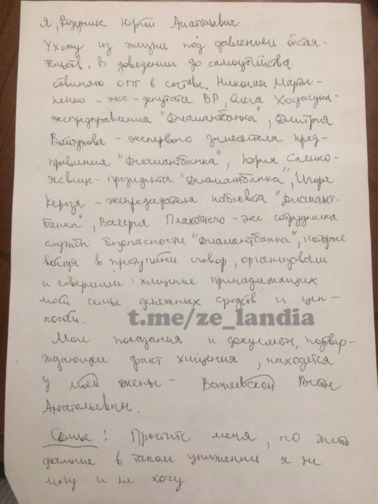 Я, Юрий Анатольевич
Ухожу из жизни под давлением обстоя-
тельств. В доведении до самоубийства
обвиняю ОПГ в составе: Николая Марты-
ненко - экс-депутата ВР, Олега Ходачука -
экспредправления "Диамантбанка", Дмитрия
- экспервого заместителя пред-
правления "Диамантбанка", Юрия
- экс вице-президента "Диамантбанка", Игоря
- экспредседателя набсовета "Диамант-
банка", Валерия - экс сотрудника
службы безопасности "Диамантбанка", которые
войдя в преступный сговор, организовали
и совершили хищение принадлежащих
моей семье денежных средств и цен-
ностей.
t.me/ze_landia
Мои показания и документы, подтвер-
ждающие факт хищения, находятся
у моей жены -
Анатольевны.
Семье: Простите меня, но жить
дальше в таком унижении я не
могу и не хочу